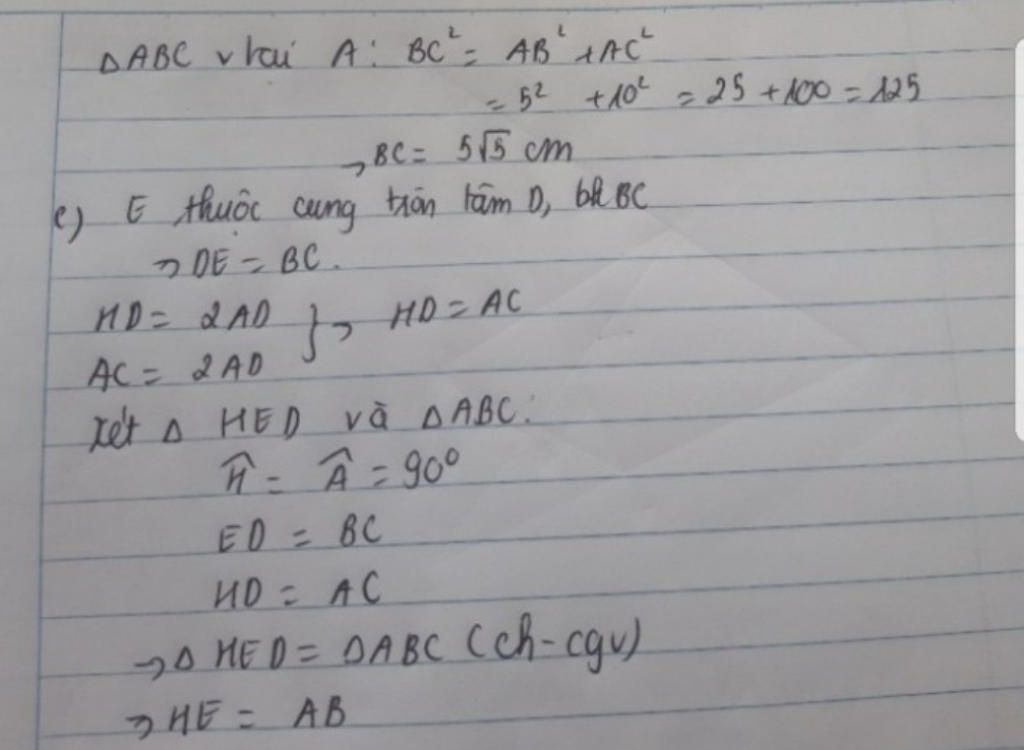 △ABC v tại A: BC² = AB² + AC²
= 5² + 10² = 25 + 100 = 125
→ BC = 5√5 cm
c) E thuộc cung tròn tâm D, bk BC
→ DE = BC.
HD = 2AD } → HD = AC
AC = 2AD
Xét △ HED và △ABC:
Ĥ = Â = 90°
ED = BC
HD = AC
→ △ HED = △ABC (ch-cgv)
→ HE = AB